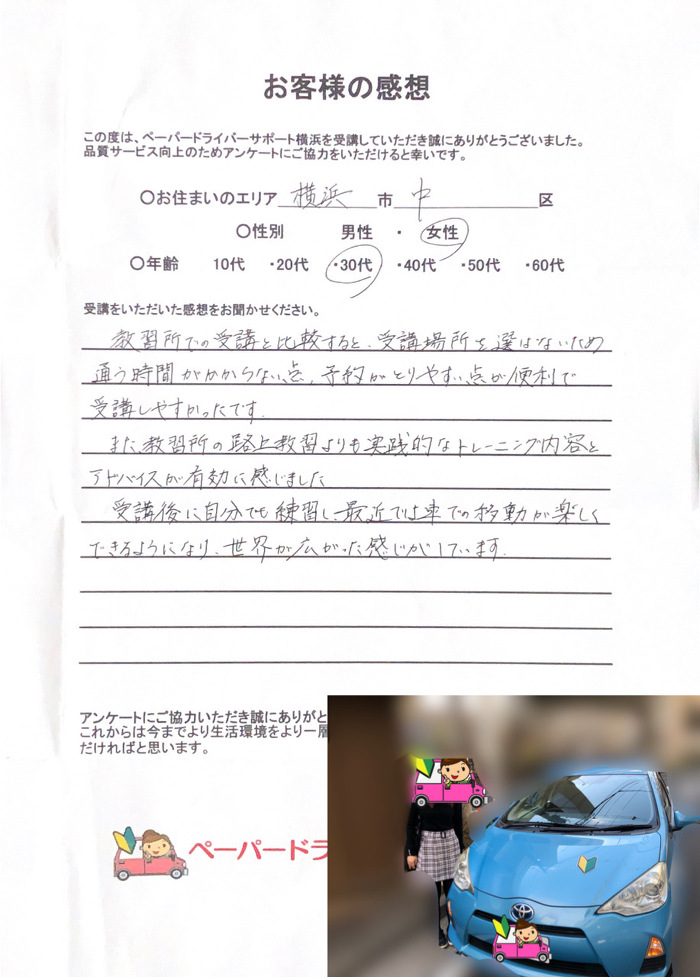 お客様の感想
この度は、ペーパードライバーサポート横浜を受講していただき誠にありがとうございました。
品質サービス向上のためアンケートにご協力をいただけると幸いです。
〇お住まいのエリア 横浜 市 中 区
〇性別 男性 ・ 女性
〇年齢 10代 ・20代 ・30代 ・40代 ・50代 ・60代
受講をいただいた感想をお聞かせください。
教習所での受講と比較すると、受講場所を選ばないため
通う時間がかからない点、予約がとりやすい点が便利で
受講しやすかったです。
また、教習所の路上教習よりも実践的なトレーニング内容と
アドバイスが有効に感じました
受講後に自分でも練習し、最近では車での移動が楽しく
できるようになり、世界が広がった感じがしています。
アンケートにご協力いただき誠にありがと
これからは今までより生活環境をより一層
だければと思います。
ペーパードラ